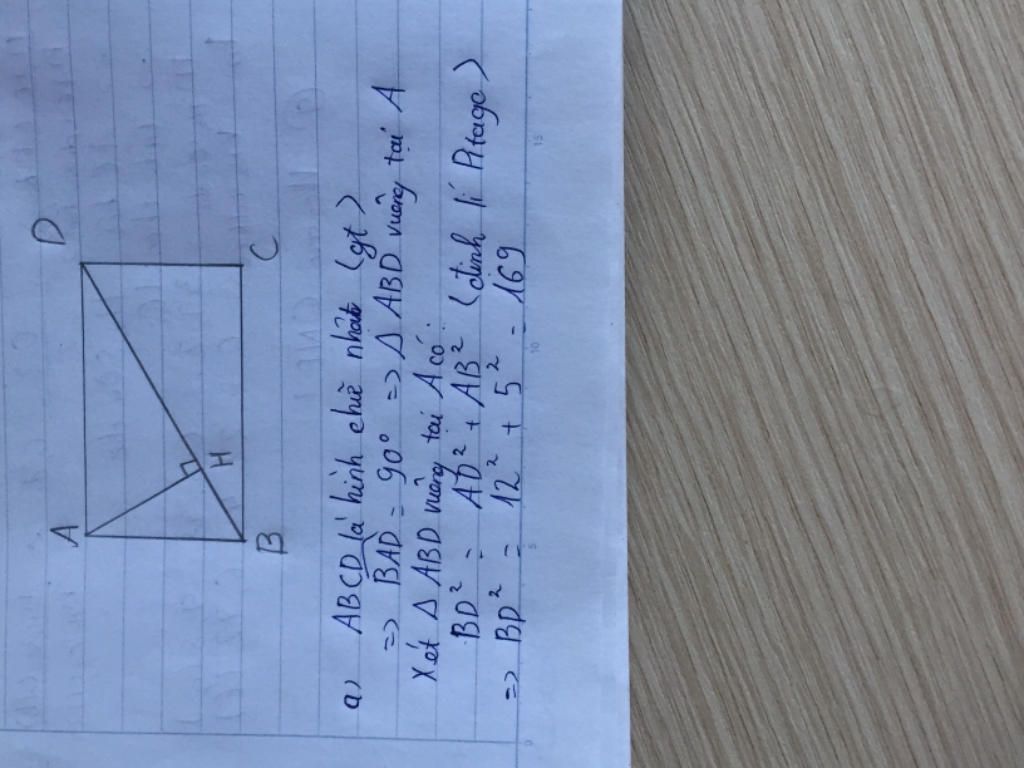 A D
H
B C
a) ABCD là hình chữ nhật (gt)
=> BAD = 90° => Δ ABD vuông tại A
Xét Δ ABD vuông tại A có:
BD² = AD² + AB² (định lí Pitago)
=> BD² = 12² + 5² = 169